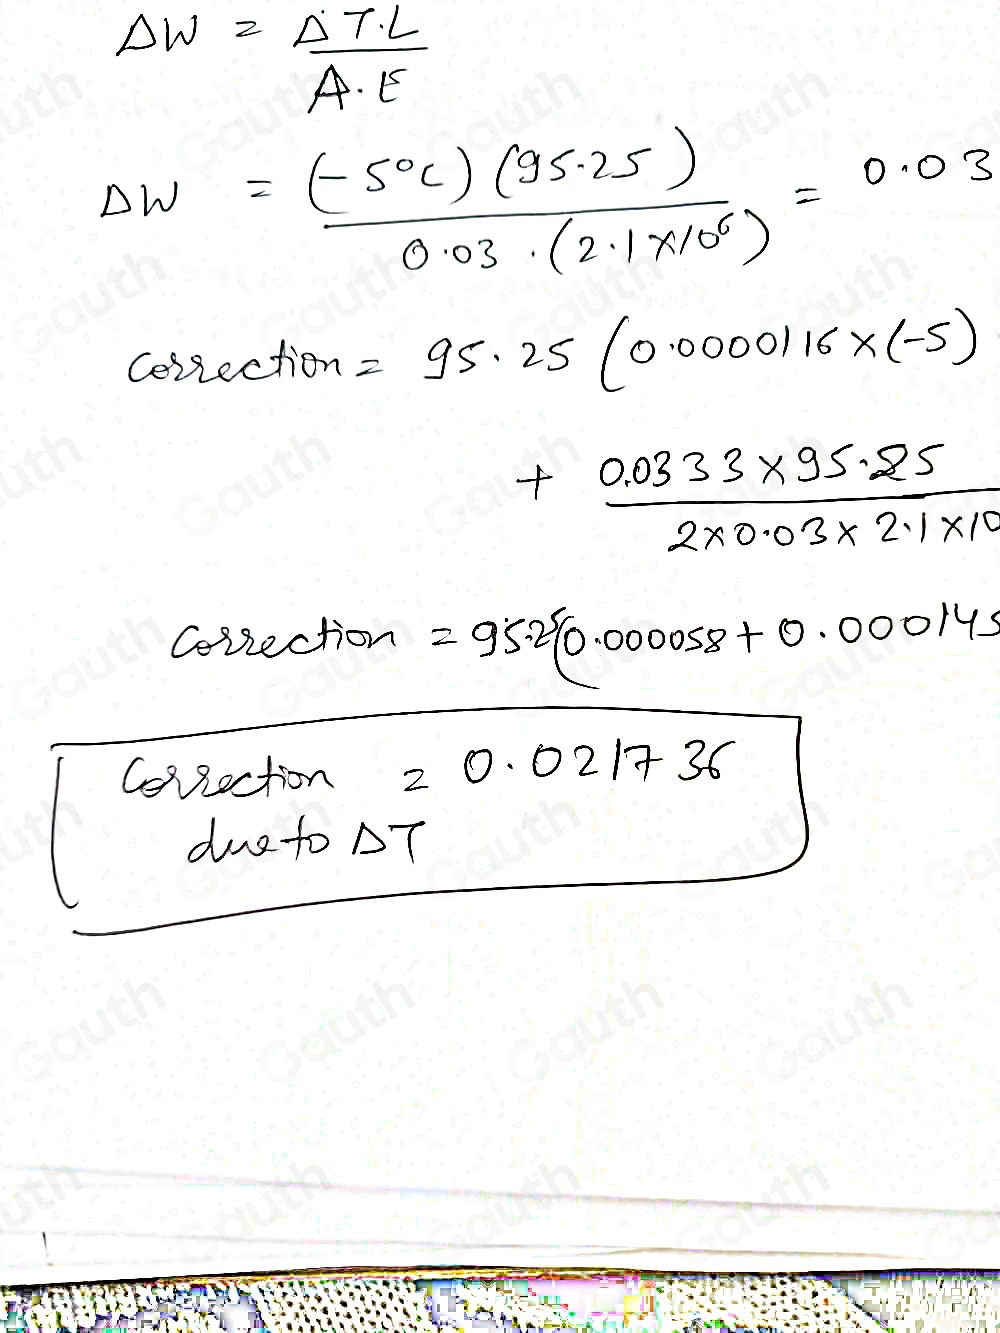 ΔW = ΔT.L / A.E
ΔW = (-5°C) (95.25) / 0.03 . (2.1×10⁶) = 0.03
Correction = 95.25 (0.0000116×(-5)
+ 0.0333×95.25 / 2×0.03×2.1×10
Correction = 95.25(0.000058+0.000145
Correction = 0.021736
due to ΔT